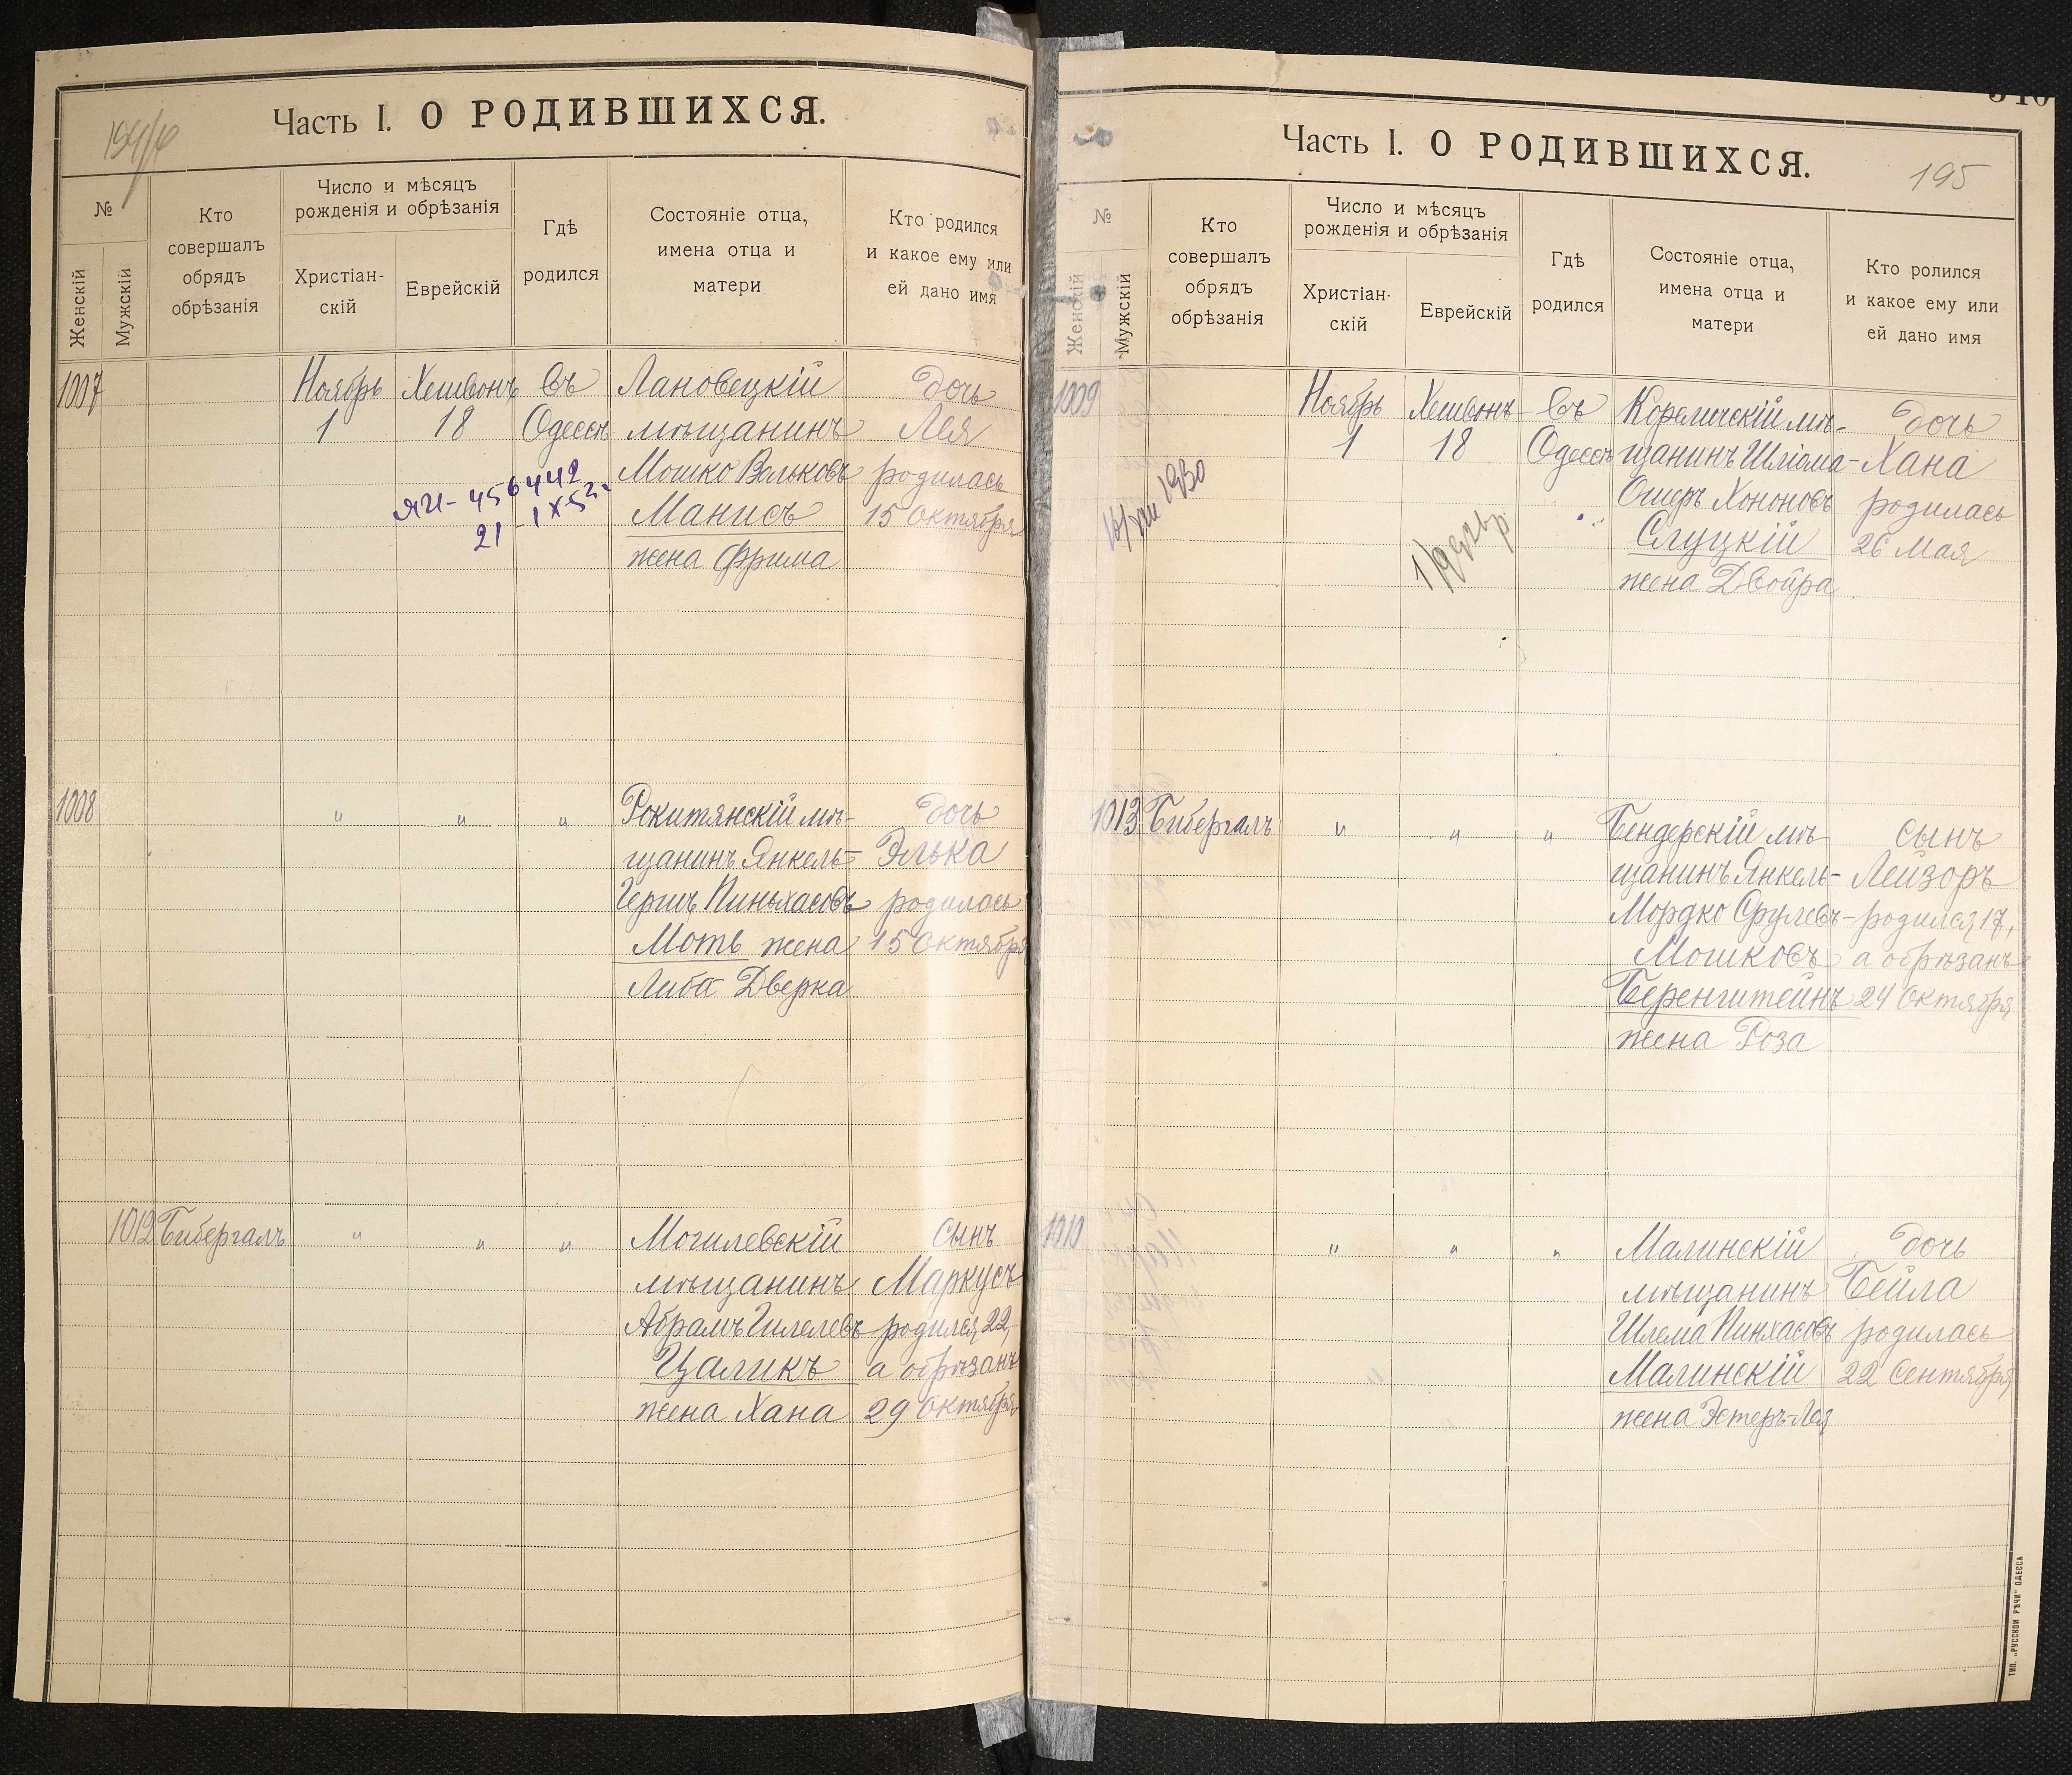 Часть I. О РОДИВШИХСЯ.
№
Женскій
Мужскій
Кто
совершалъ
обрядъ
обрѣзанія
Число и мѣсяцъ
рожденія и обрѣзанія
Христіан-
скій
Еврейскій
Гдѣ
родился
Состояніе отца,
имена отца и
матери
Кто родился
и какое ему или
ей дано имя
1007
Ноябрь
1
Хешвонъ
18
въ
Одессѣ
ЯИ-456442
Лановецкій
мѣщанинъ
Мошко Вольковъ
Манисъ
жена Фрима
дочь
Лея
родилась
15 Октября
1008
" " "
Рокитянскій мѣ-
щанинъ Янкель-
Гершъ Пиньхасовъ
Моть жена
Либа Дверка
дочь
Элька
родилась
15 Октября
1012 Бибергалъ
" " "
Могилевскій
мѣщанинъ
Абрамъ Гилелевъ
Цаликъ
жена Хана
сынъ
Маркусъ
родился 22,
а обрѣзанъ
29 Октября
Часть I. О РОДИВШИХСЯ.
195
№
Женскій
Мужскій
Кто
совершалъ
обрядъ
обрѣзанія
Число и мѣсяцъ
рожденія и обрѣзанія
Христіан-
скій
Еврейскій
Гдѣ
родился
Состояніе отца,
имена отца и
матери
Кто ролился
и какое ему или
ей дано имя
1009
16/VIII 1930
Ноябрь
1
Хешвонъ
18
въ
Одессѣ
Кореличскій мѣ-
щанинъ Шліома-
Ошеръ Хононовъ
Слуцкій
жена Двойра
дочь
Хана
родилась
26 Мая
1013 Бибергалъ
" " "
Бендерскій мѣ-
щанинъ Янкель-
Мордко Срулевъ-
Мошковъ
Беренштейнъ
жена Роза
сынъ
Лейзоръ
родился 17,
а обрѣзанъ
24 Октября
1010
" " "
Малинскій
мѣщанинъ
Шлема Пинхасовъ
Малинскій
жена Эстеръ-Лея
дочь
Бейла
родилась
22 Сентября
ТИП. „РУССКОЙ РѢЧИ" ОДЕССА